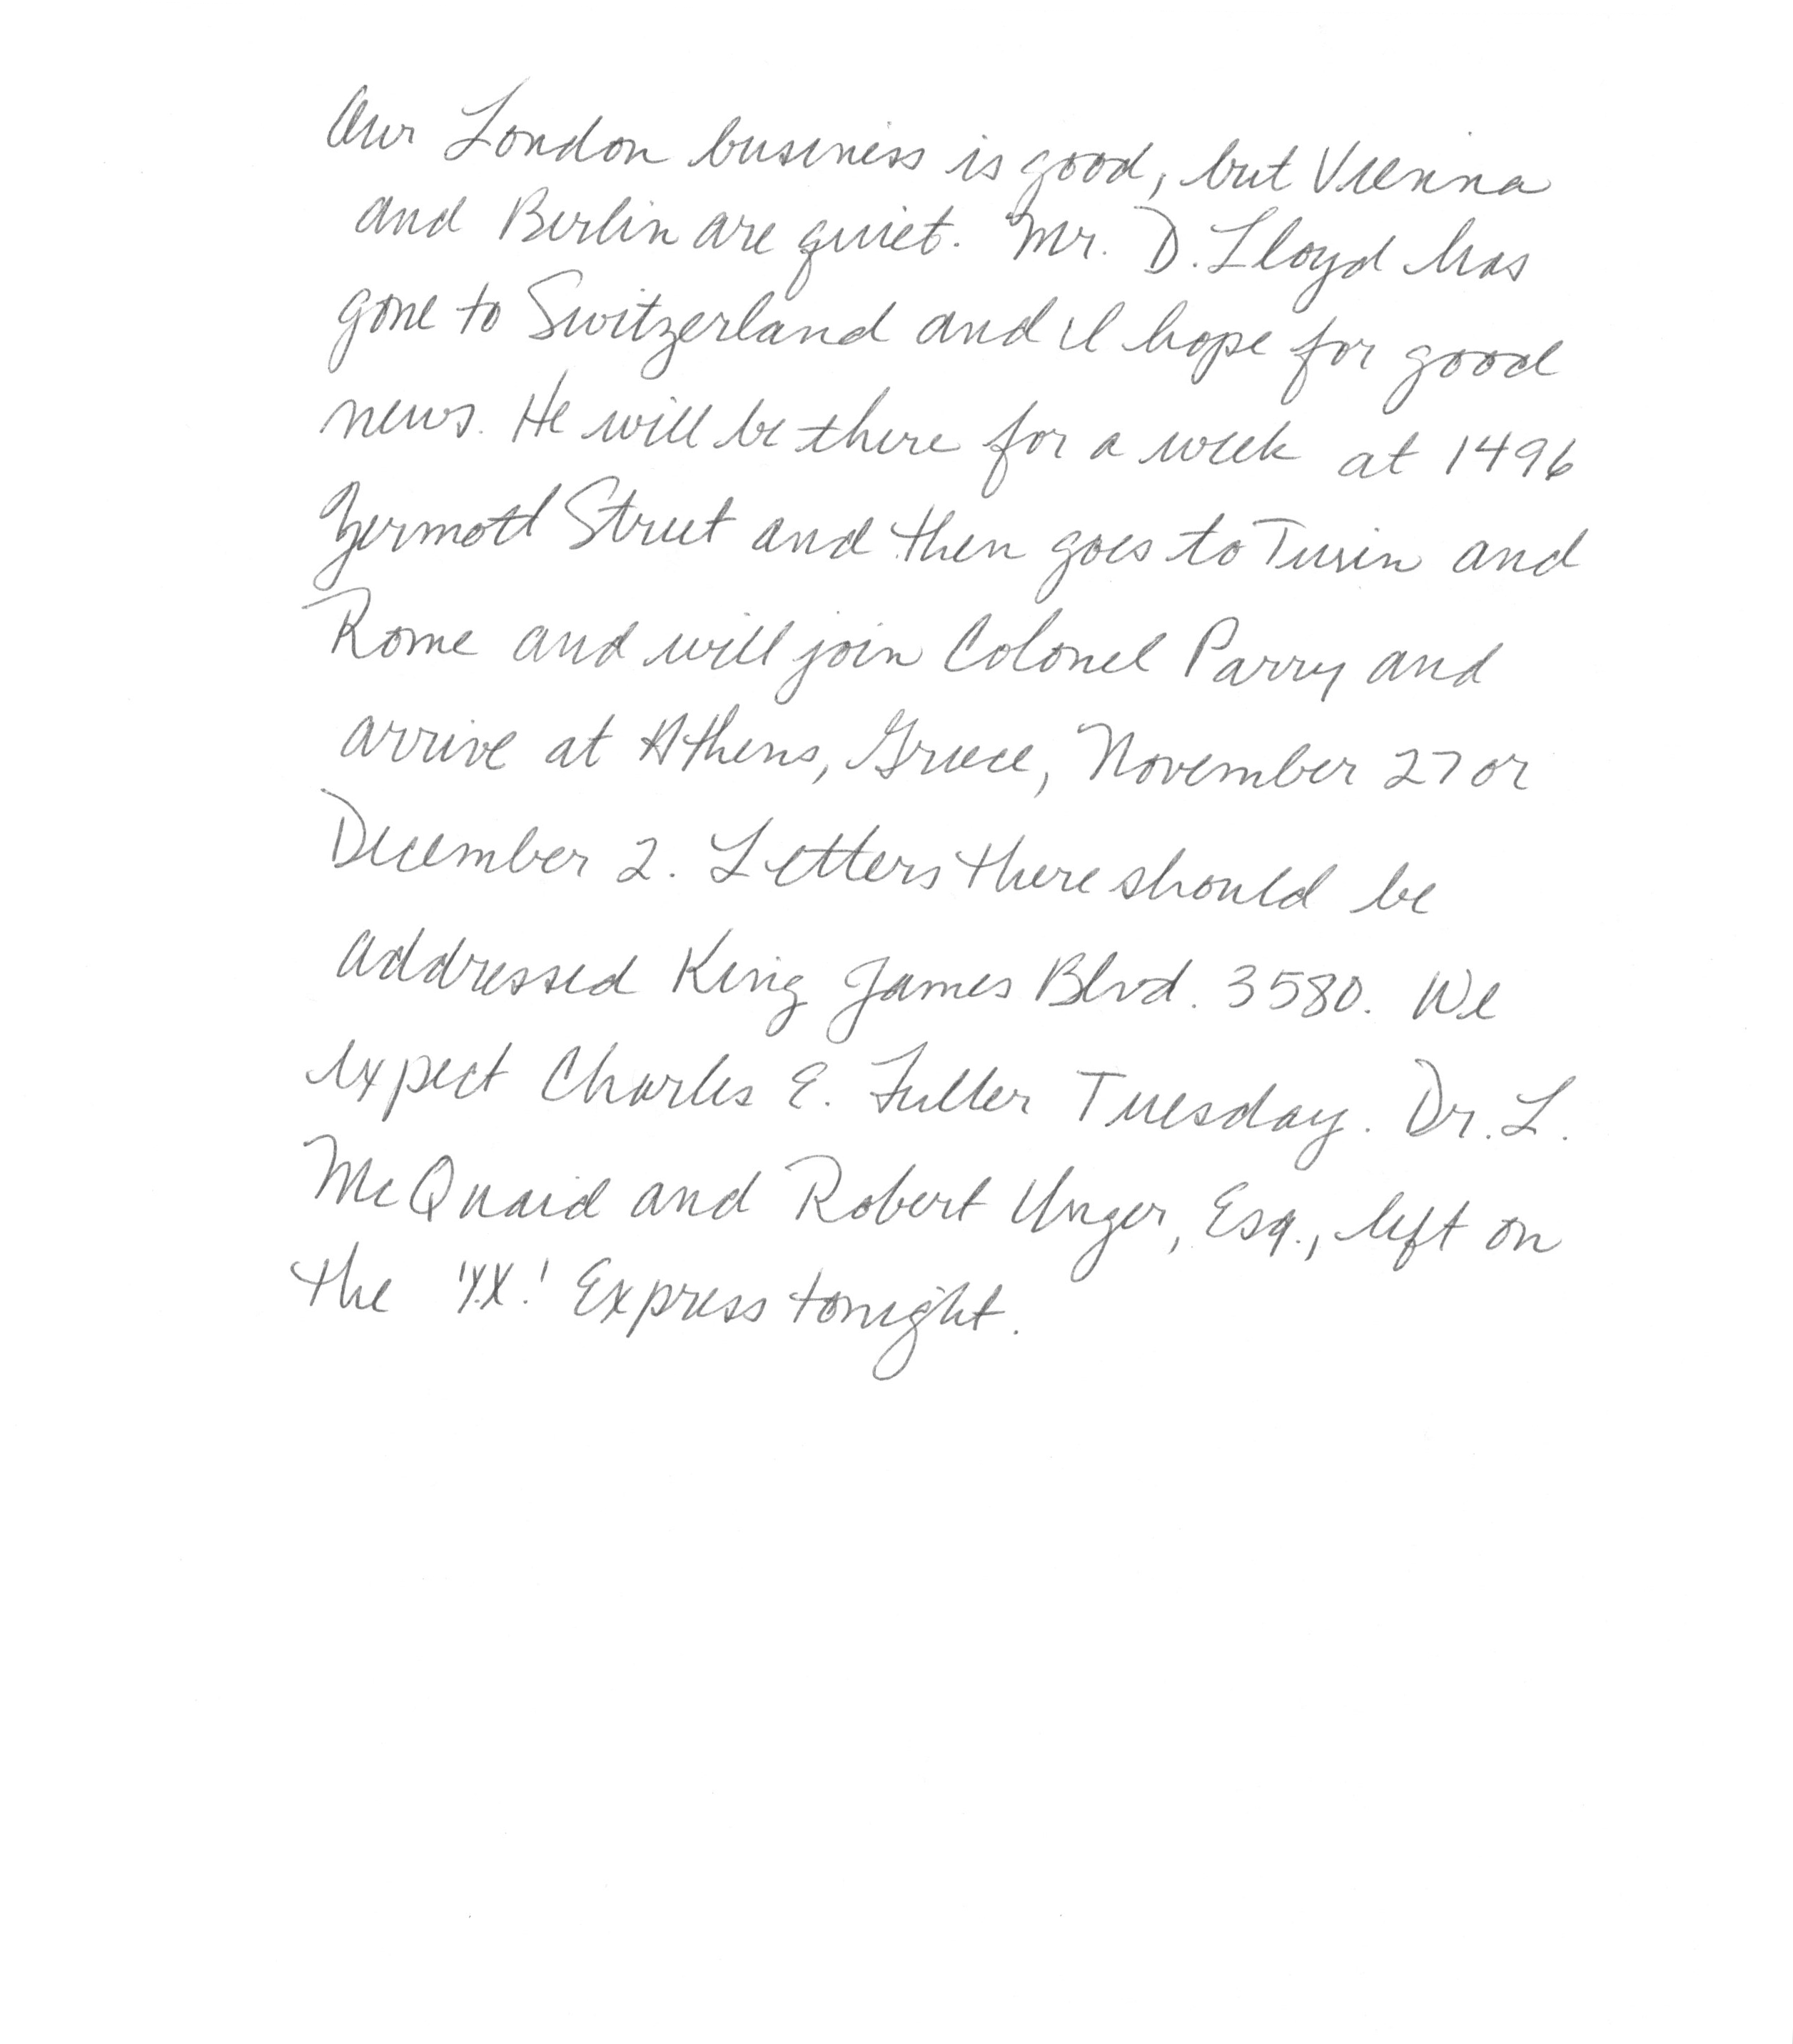 Our London business is good, but Vienna
and Berlin are quiet. Mr. D. Lloyd has
gone to Switzerland and I hope for good
news. He will be there for a week at 1496
Zermott Street and then goes to Turin and
Rome and will join Colonel Parry and
arrive at Athens, Greece, November 27 or
December 2. Letters there should be
addressed King James Blvd. 3580. We
expect Charles E. Fuller Tuesday. Dr. L.
McQuaid and Robert Unger, Esq., left on
the 'Y.X.' Express tonight.